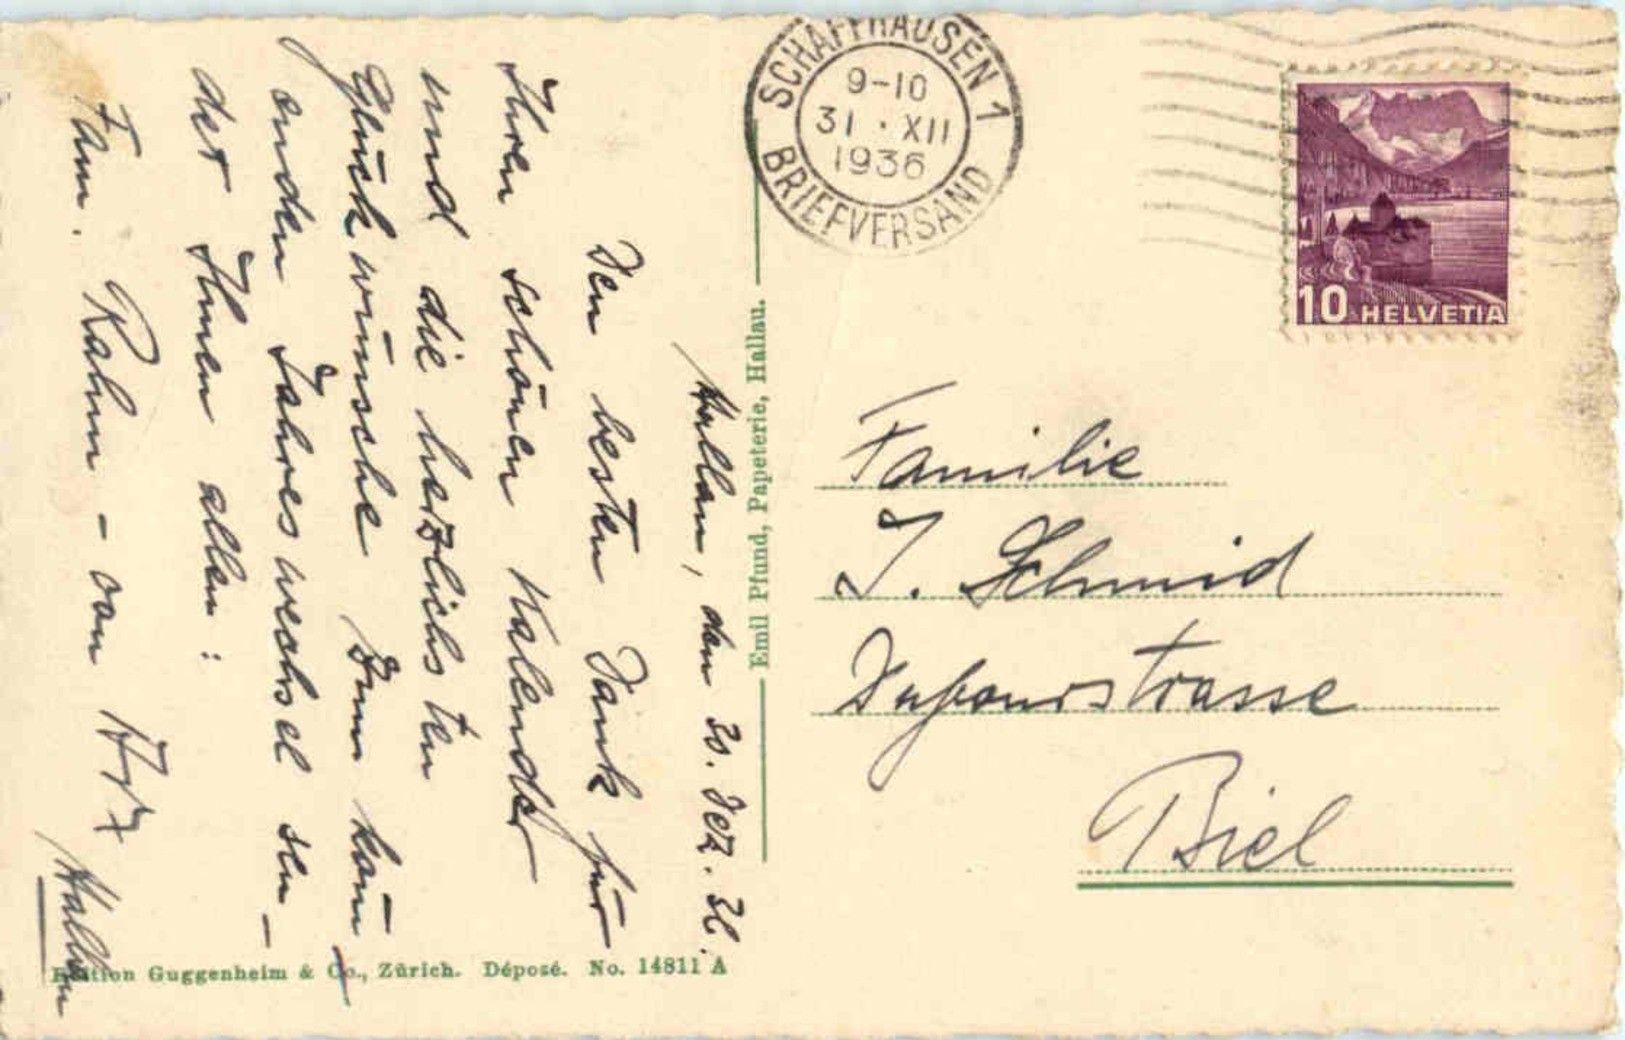 Hallau, den 30. Dez. 36.
Den besten Dank für
Ihren schönen Kalender
und die herzlichsten
Glückwünsche zum kom̄
enden Jahreswechsel sen-
det Ihnen allen:
Fam. Rahm - von
Hallau
SCHAFFHAUSEN 1
9-10
31 · XII
1936
BRIEFVERSAND
10 HELVETIA
Familie
J. Schmid
Dufourstrasse
Biel
Emil Pfund, Papeterie, Hallau.
Edition Guggenheim & Co., Zürich. Déposé. No. 14811 A